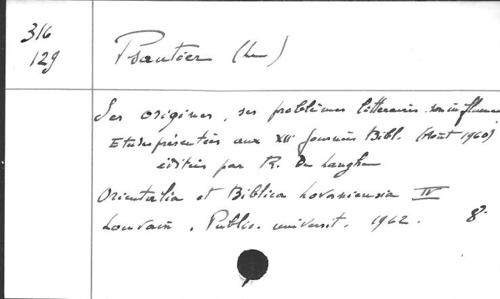 316
129
Psautier (Le)
Ses origines, ses problèmes littéraires, son influence
Etudes présentées aux XIIe Journées Bibl. (Août 1960)
éditées par R. De Langhe
Orientalia et Biblica Lovaniensia IV
Louvain, Public. universit. 1962. 8°